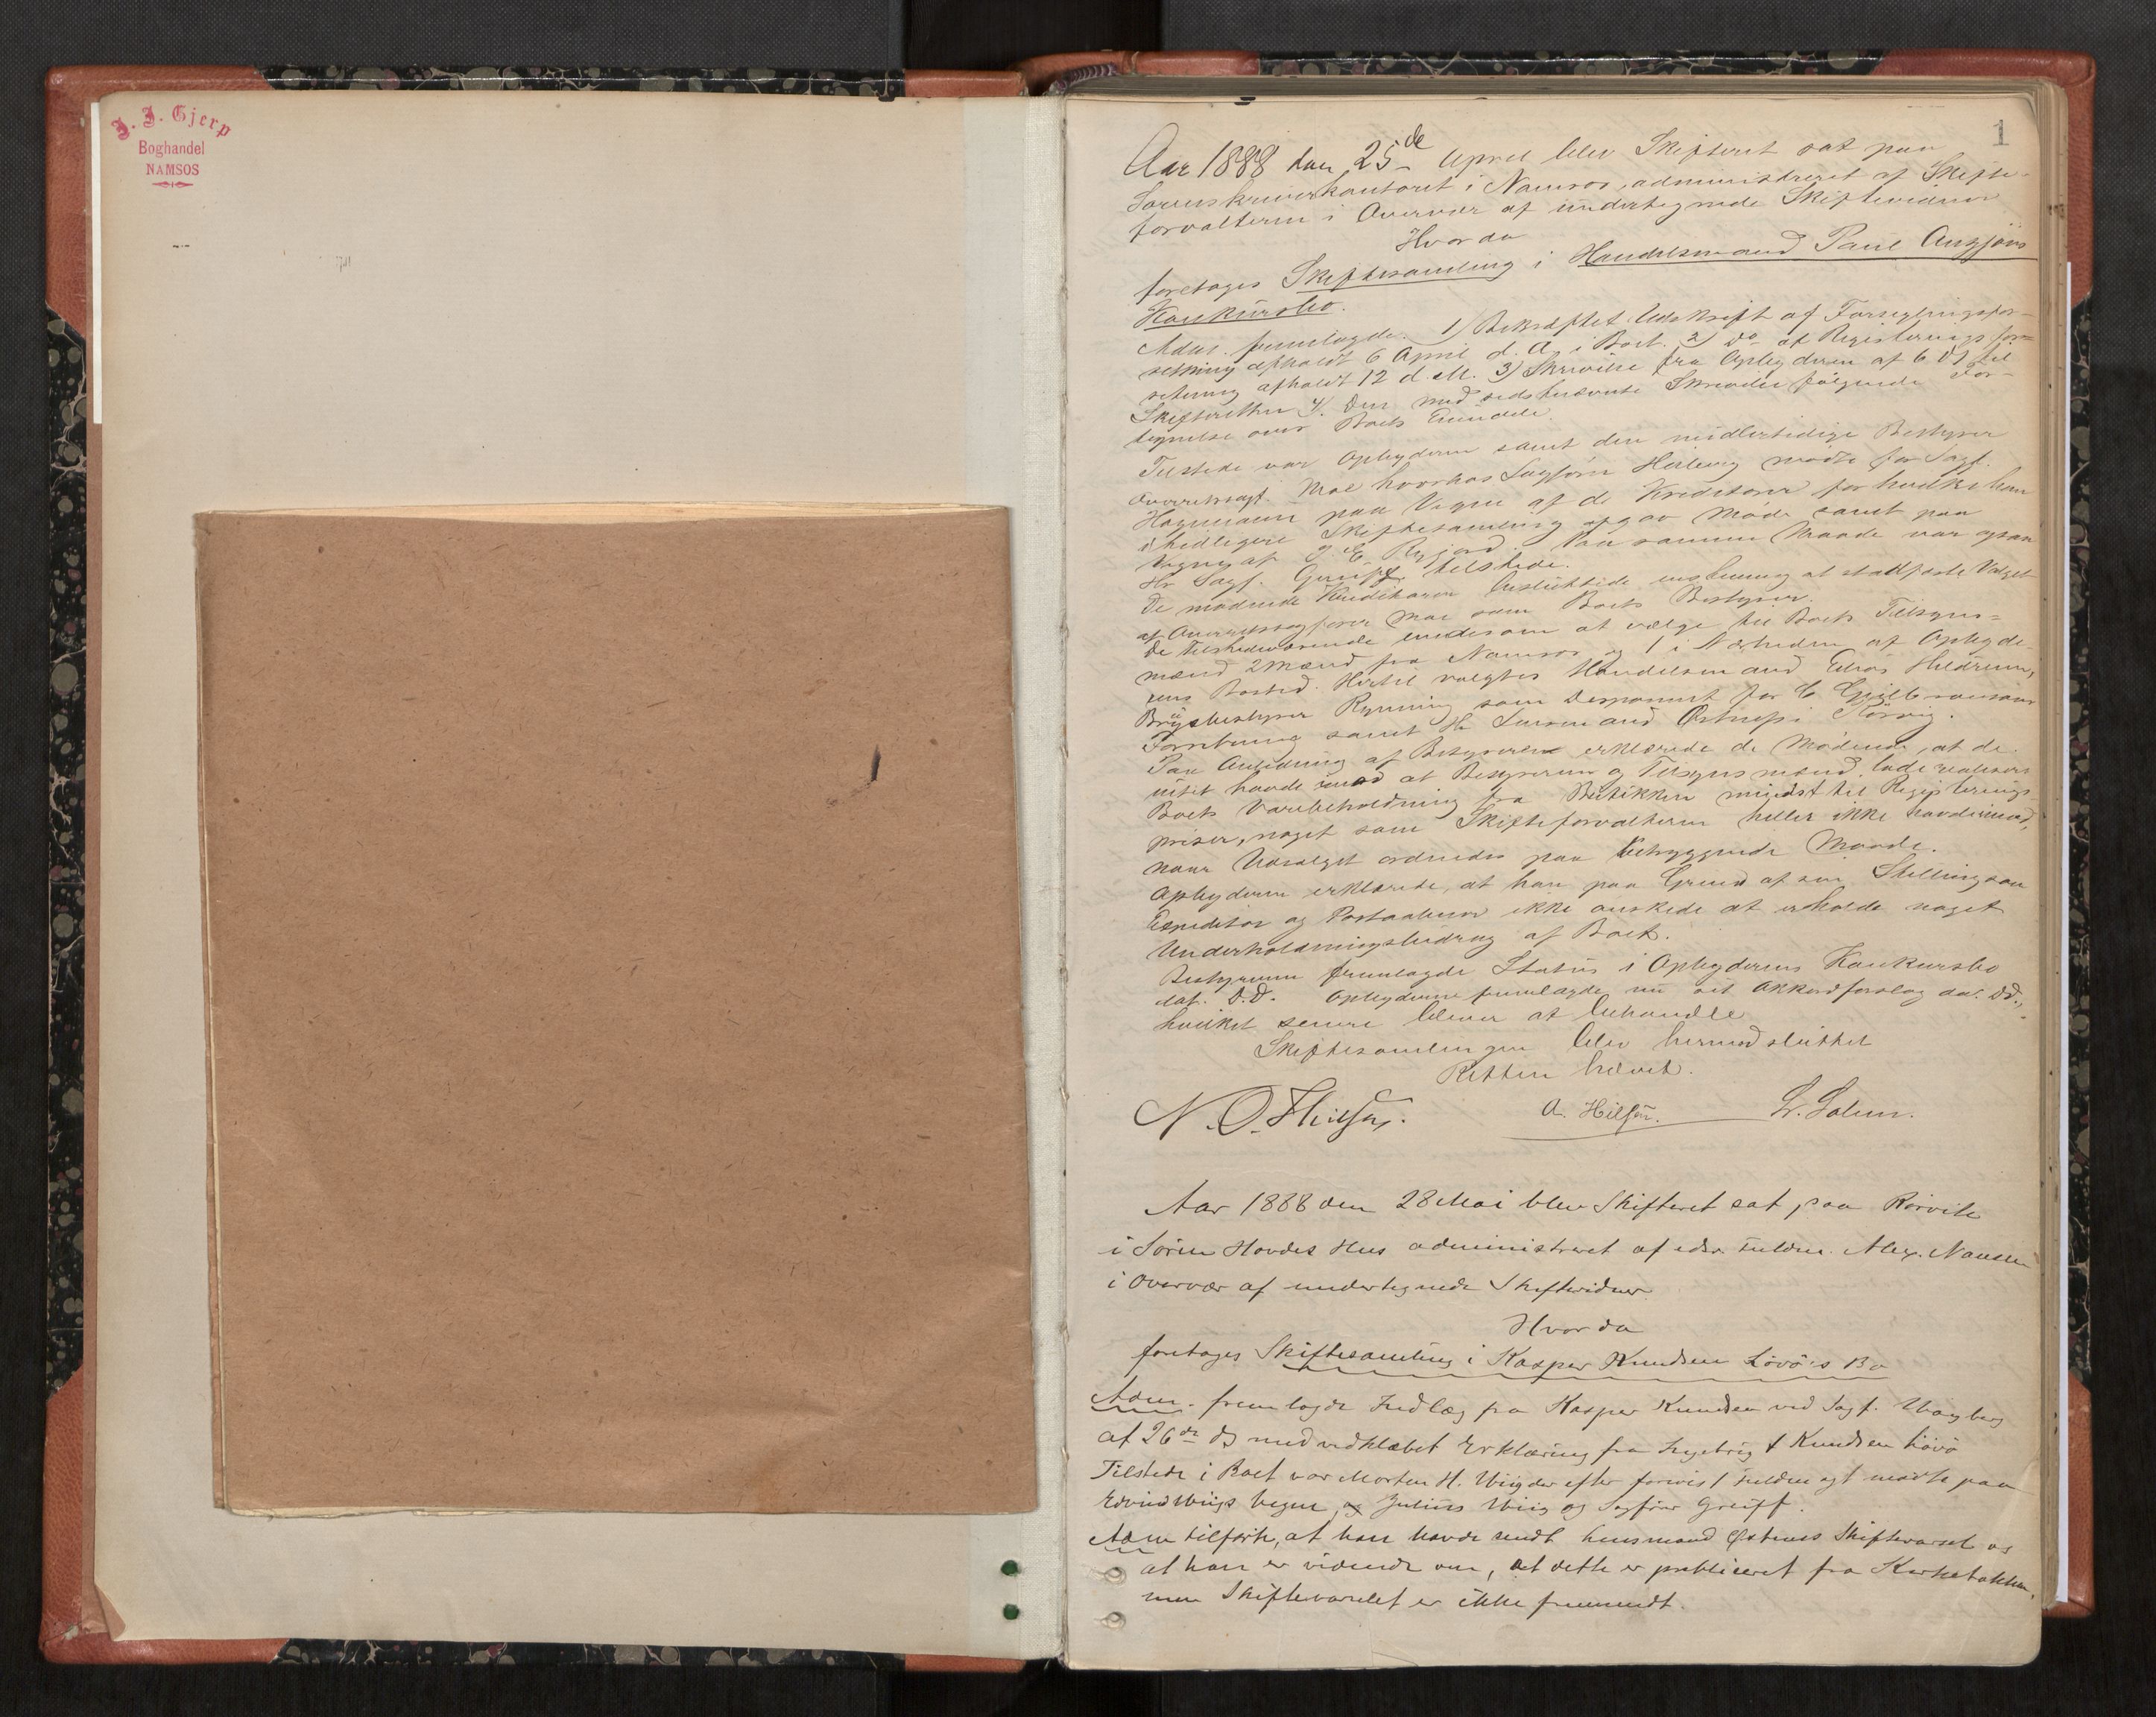 J. J. Gjerp
Boghandel
NAMSOS
1
Aar 1888 den 25de April blev Skifteret sat paa
Sorenskriverkontoret i Namsos, administreret af Skifte-
forvalteren i Overvær af undertegnede Skiftevidner
Hvorda
foretoges Skiftesamling i Handelsmand Paul
Konkursbo.
Adm. fremlagde. 1) Bekræftet Udskrift af Forseglingsfor-
retning afholdt 6 April d. A. i Boet. 2) do af Registreringsfor-
retning afholdt 12 d. M. 3) Skrivelse fra Opbyderen af 6 ds til
Skifteretten 4. Den med sidstnævnte Skrivelse følgende For-
tegnelse over Boets Eiendele.
Tilstede var Opbyderen samt den midlertidige Bestyrer
Overretssagf. Moe hvorhos Sagfører Heiberg mødte for Sagf.
Hagemann paa Vegne af de Kreditorer for hvilke han
i tidligere Skiftesamling afgav Møde samt paa
Vegne af J. E. Ryjord. Paa samme Maade var ogsaa
Hr Sagf. Greiff tilstede.
De mødende Kreditorer besluttede enstemmig at stadfæste Valget
af Overretssagfører Moe som Boets Bestyrer.
De Tilstedeværende enedes om at vælge til Boets Tilsyns-
mænd 2 Mænd fra Namsos og 1 i Nærheden af Opbyde-
rens Bosted. Hertil valgtes Handelsmand Hildrum,
Brugsbestyrer Rynning som Disponent for
samt Hr Lensmand Østnes i Rørvig.
Paa Anledning af Bestyreren erklærede de Mødende, at de
intet havde imod at Bestyreren og Tilsynsmænd lade realisere
Boets Varebeholdning fra Butikken mindst til Registrerings
priser, noget som Skifteforvalteren heller ikke havde imod,
naar Udsalget ordnedes paa betryggende Maade.
Opbyderen erklærede, at han paa Grund af sin Stilling som
Expeditør og Postaabner ikke ønskede at erholde noget
Underholdningsbidrag af Boet.
Bestyreren fremlagde Status i Opbyderens Konkursbo
dat. D.D. Opbyderen fremlagde nu sit Akkordforslag dat. DD.,
hvilket senere bliver at behandle
Skiftesamlingen blev hermed sluttet
Retten hævet.
N. O.
A. Hilsen. L. Salum.
Aar 1888 den 28 Mai blev Skifteret sat paa Rørvik
i Sören Hovdes Hus administreret af edsv. Fuldm. Alex. Nansen
i Overvær af undertegnede Skiftevidner
Hvorda
foretoges Skiftesamling i Kasper Knudsen Lövö's Bo
Adm. fremlagde Indlæg fra Kasper Knudsen ved Sagf.
af 26de ds med vedklæbet Erklæring fra Ingebrigt Knudsen Lövö
Tilstede i Boet var Morten H. Wiig der efter forevist Fuldmagt mødte paa
Edvind Wiigs Vegne, og Julius Wiig og Sagförer Greiff.
Adm tilførte, at han havde sendt Lensmand Østnes Skiftevarsel og
at han er vidende om, at dette er publiceret fra Kirkebakken,
men Skiftevarselet er ikke fremsendt.